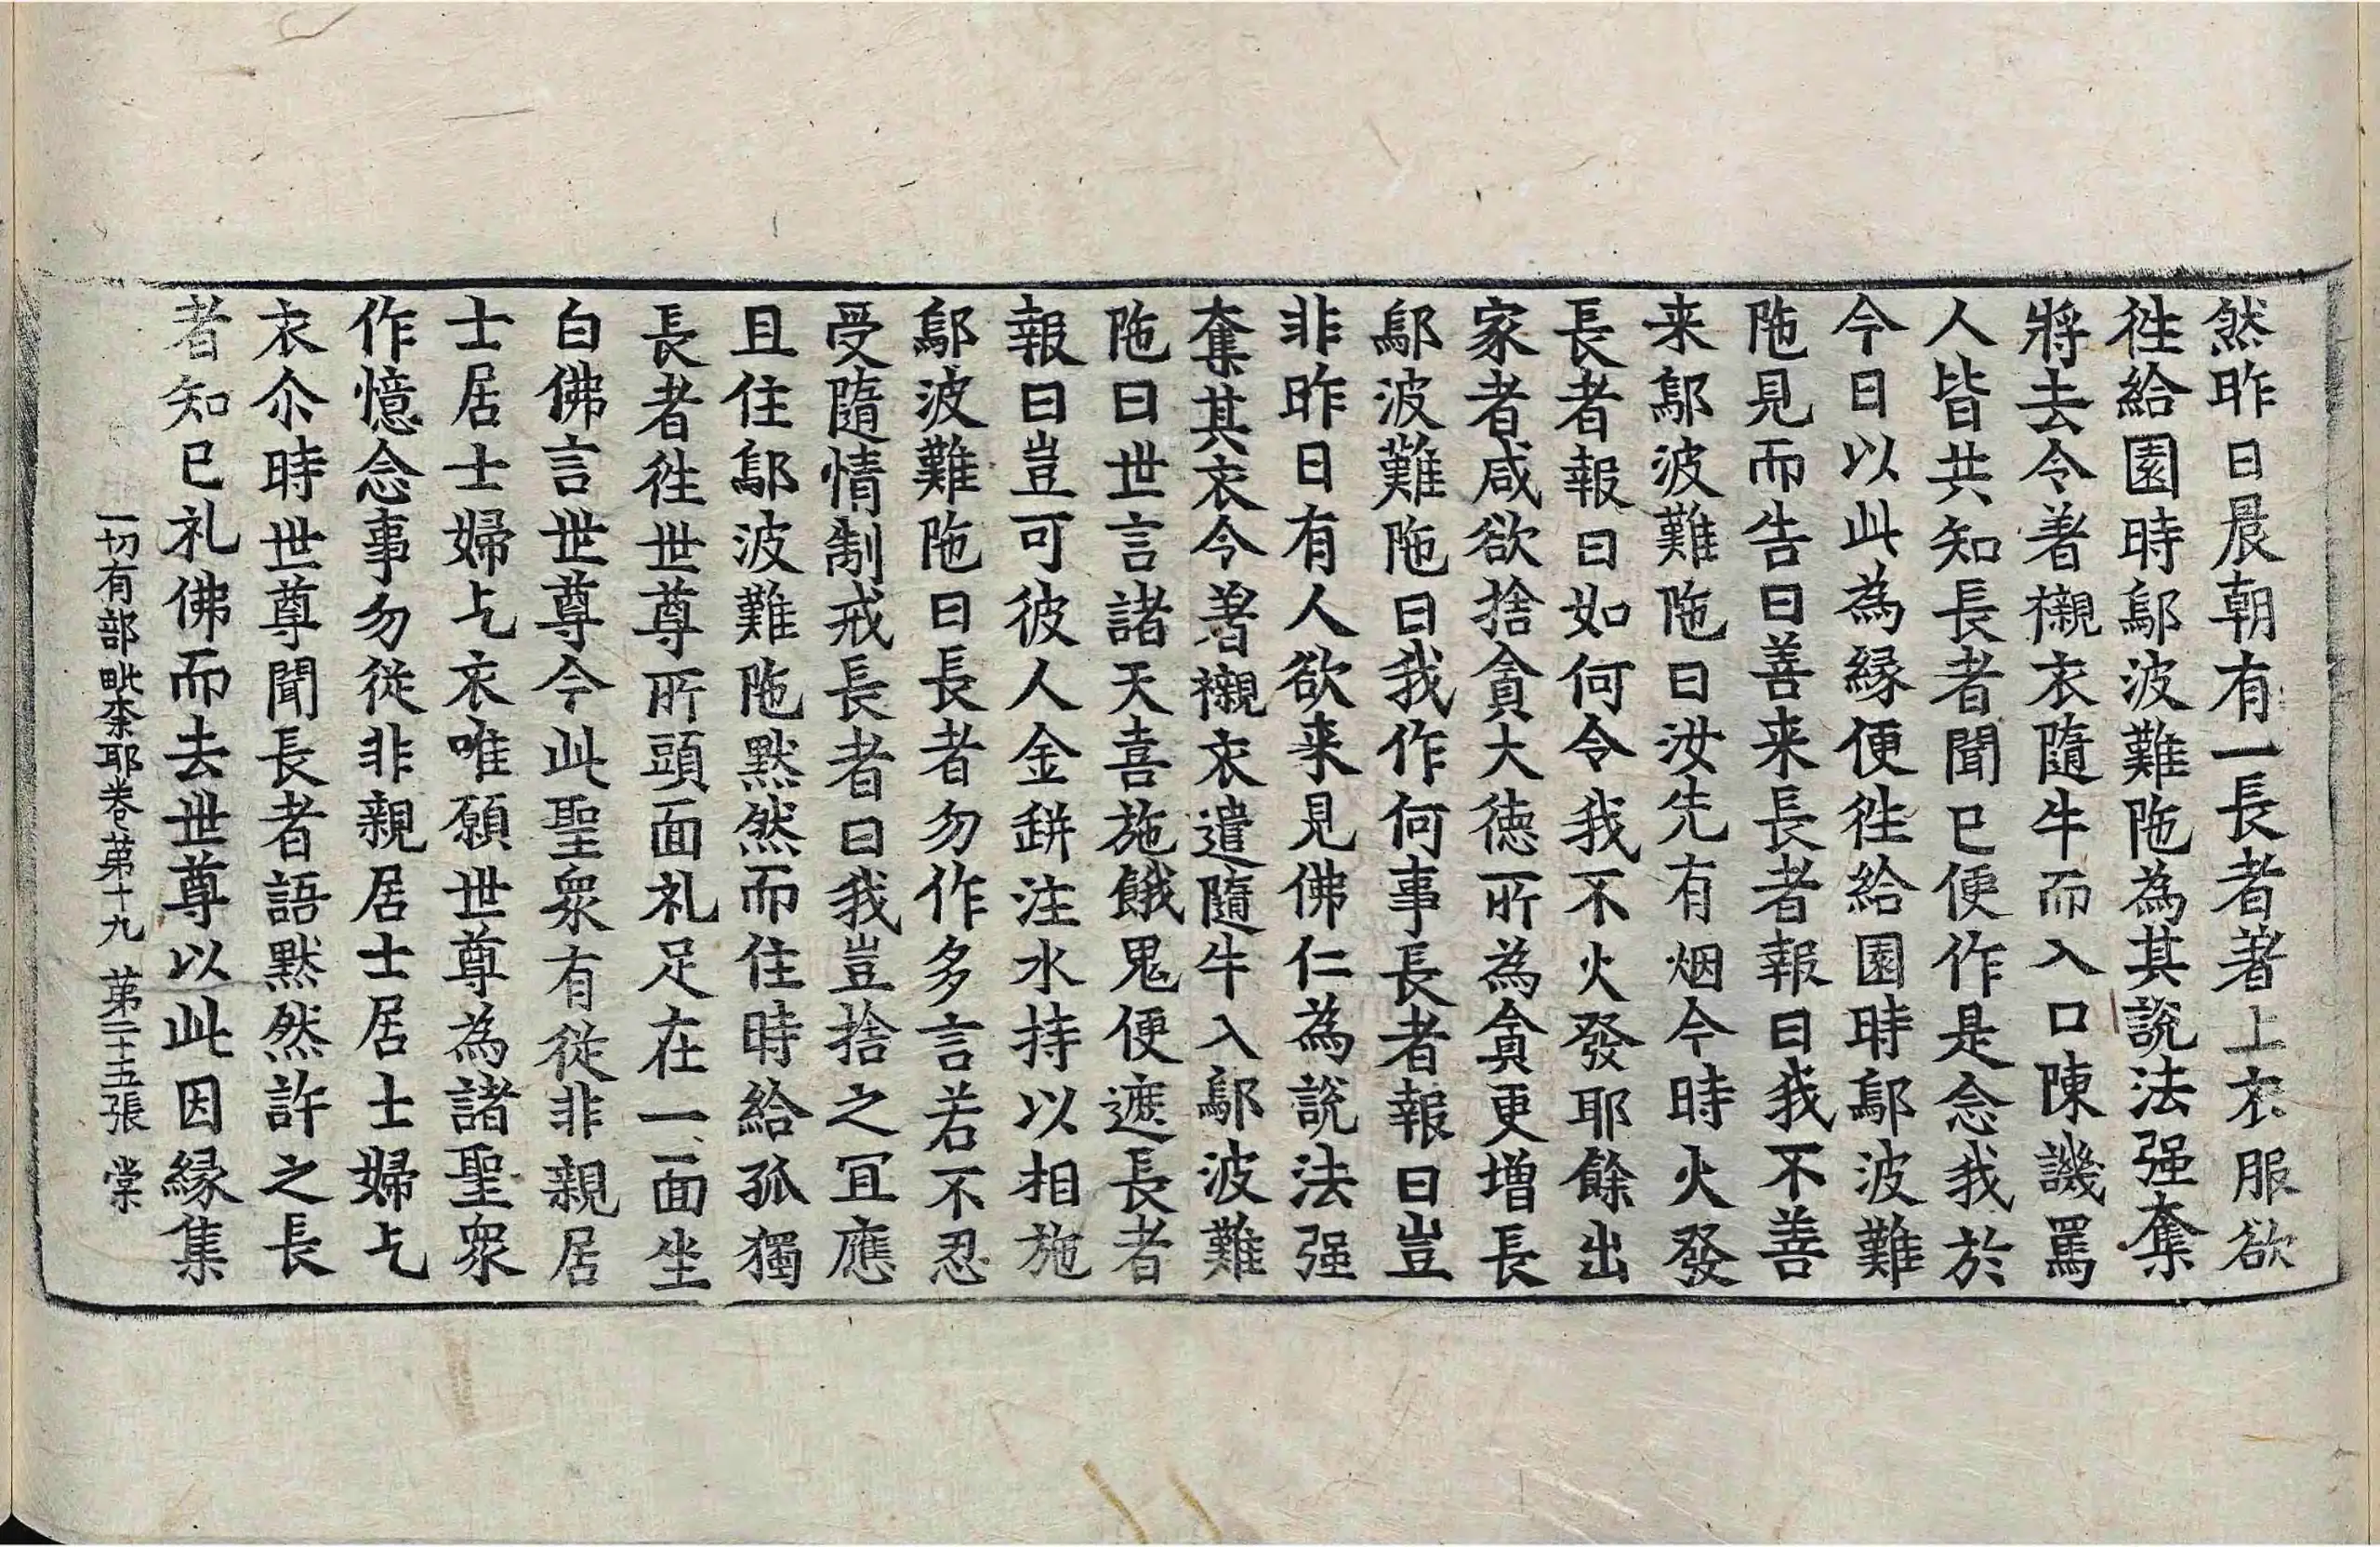 然昨日晨朝有一長者著上衣服欲
徃給園時鄔波難陁為其說法强奪
將去令著襯衣隨牛而入口陳譏罵
人皆共知長者聞已便作是念我於
今日以此為縁便徃給園時鄔波難
陁見而告曰善来長者報曰我不善
来鄔波難陁曰汝先有烟今時火發
長者報曰如何令我不火發耶餘出
家者咸欲捨貪大德所為貪更增長
鄔波難陁曰我作何事長者報曰豈
非昨日有人欲来見佛仁為說法强
奪其衣今著襯衣遣隨牛入鄔波難
陁曰世言諸天喜施餓鬼便遮長者
報曰豈可彼人金缾注水持以相施
鄔波難陁曰長者勿作多言若不忍
受隨情制戒長者曰我豈捨之冝應
且住鄔波難陁黙然而住時給孤獨
長者徃世尊所頭面礼足在一面坐
白佛言世尊今此聖衆有從非親居
士居士婦乞衣唯願世尊為諸聖衆
作憶念事勿從非親居士居士婦乞
衣尒時世尊聞長者語黙然許之長
者知已礼佛而去世尊以此因縁集
一切有部毗柰耶卷苐十九 苐二十五張 棠